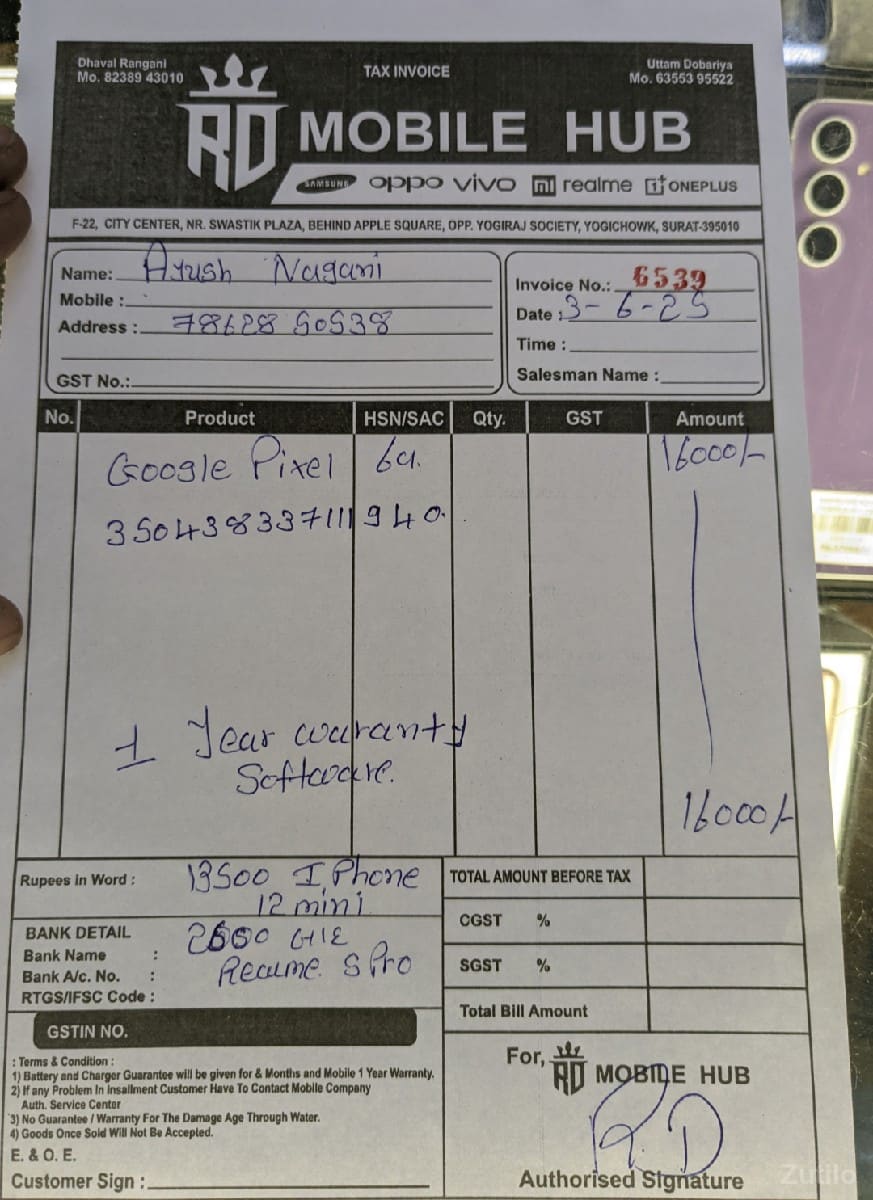 Dhaval Rangani
Mo. 82389 43010
TAX INVOICE
Uttam Dobariya
Mo. 63553 95522
RD MOBILE HUB
SAMSUNG oppo vivo mi realme 1+ ONEPLUS
F-22, CITY CENTER, NR. SWASTIK PLAZA, BEHIND APPLE SQUARE, OPP. YOGIRAJ SOCIETY, YOGICHOWK, SURAT-395010
Name: Ayush Nagani
Mobile :
Address : 78628 50538
GST No.:
Invoice No.: 6539
Date : 3-6-25
Time :
Salesman Name :
No. Product HSN/SAC Qty. GST Amount
Google Pixel 6a. 16000/-
350438337111940.
1 Year waranty
Software.
16000/-
Rupees in Word : 13500 I Phone
12 mini
BANK DETAIL
Bank Name :
Bank A/c. No. :
RTGS/IFSC Code :
Realme 5 Pro
GSTIN NO.
TOTAL AMOUNT BEFORE TAX
CGST %
SGST %
Total Bill Amount
: Terms & Condition :
1) Battery and Charger Guarantee will be given for & Months and Mobile 1 Year Warranty.
2) If any Problem In Insallment Customer Have To Contact Mobile Company
Auth. Service Center
3) No Guarantee / Warranty For The Damage Age Through Water.
4) Goods Once Sold Will Not Be Accepted.
E. & O. E.
Customer Sign :
For, RD MOBILE HUB
R.D
Authorised Signature
Zutilo